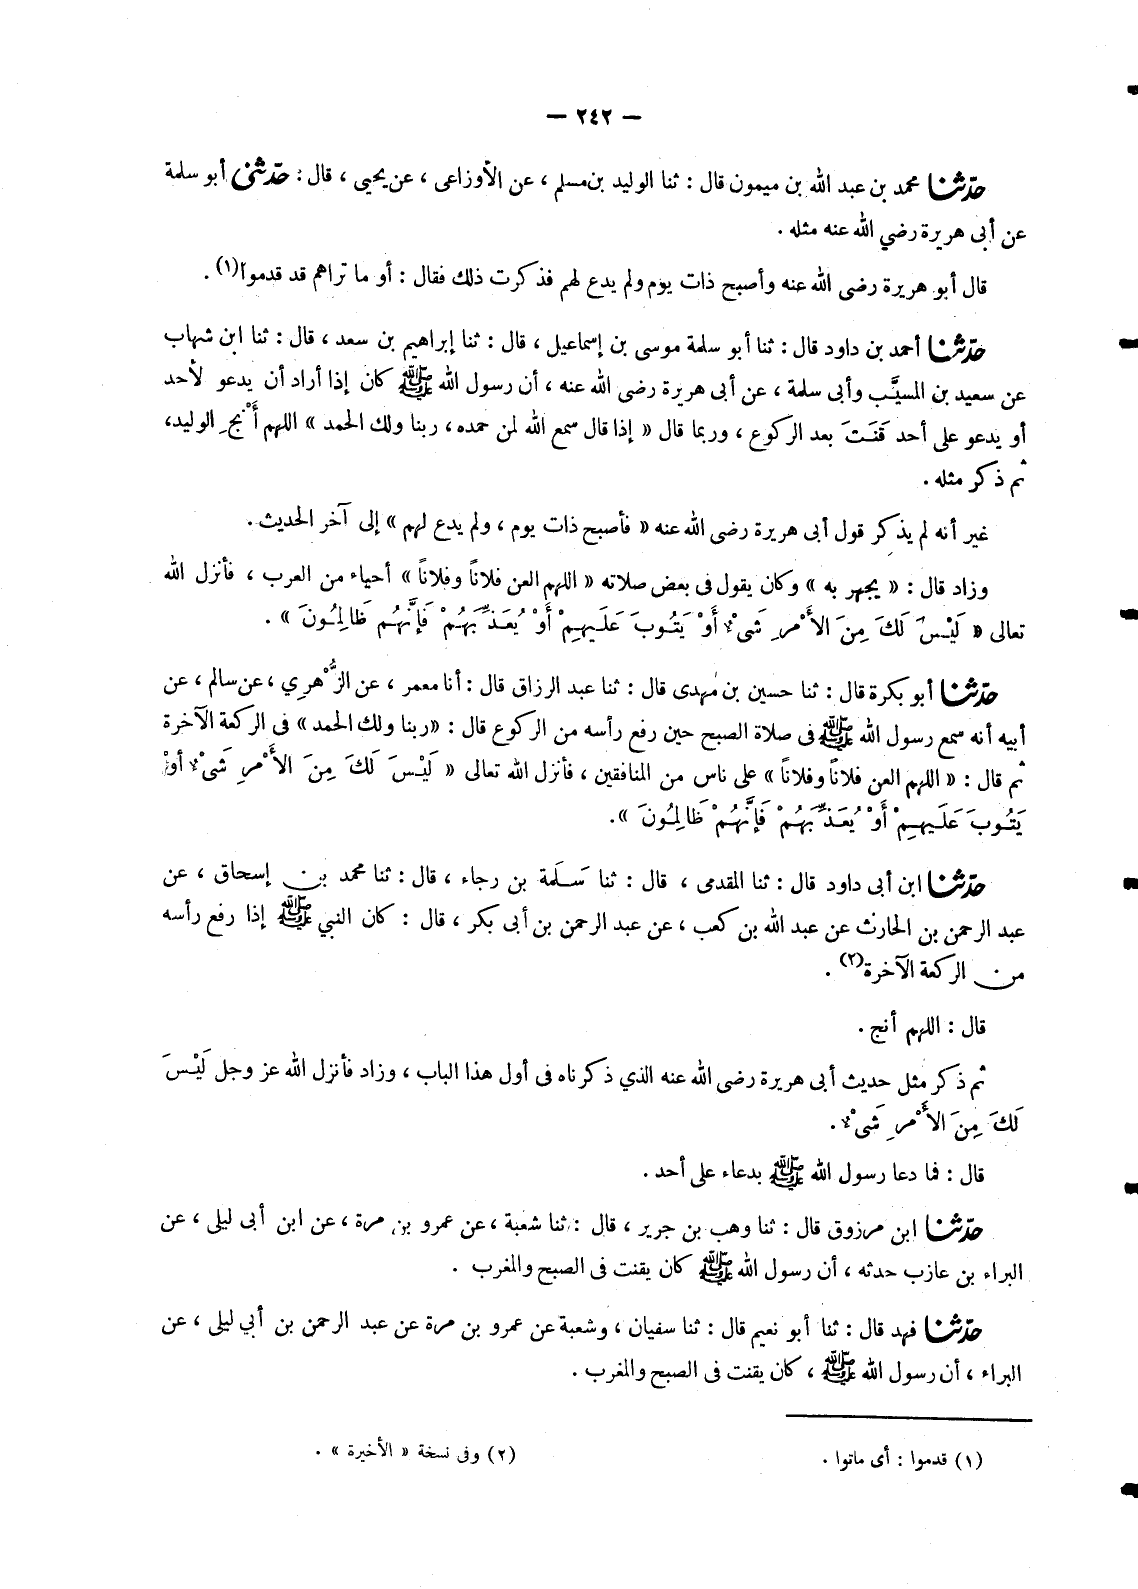 — ٢٤٢ —
حدّثنا محمد بن عبد الله بن ميمون قال : ثنا الوليد بن مسلم ، عن الأوزاعى ، عن يحيى ، قال : حدّثنى أبو سلمة
عن أبى هريرة رضي الله عنه مثله .
قال أبو هريرة رضى الله عنه وأصبح ذات يوم ولم يدع لهم فذكرت ذلك فقال : أو ما تراهم قد قدموا(١) .
حدّثنا أحمد بن داود قال : ثنا أبو سلمة موسى بن إسماعيل ، قال : ثنا إبراهيم بن سعد ، قال : ثنا ابن شهاب
عن سعيد بن المسيَّب وأبى سلمة ، عن أبى هريرة رضى الله عنه ، أن رسول الله ﷺ كان إذا أراد أن يدعو لأحد
أو يدعو على أحد قَنَتَ بعد الركوع ، وربما قال « إذا قال سمع الله لمن حمده ، ربنا ولك الحمد » اللهم أَنْجِ الوليد،
ثم ذكر مثله .
غير أنه لم يذكر قول أبى هريرة رضى الله عنه « فأصبح ذات يوم ، ولم يدع لهم » إلى آخر الحديث .
وزاد قال : « يجهر به » وكان يقول فى بعض صلاته « اللهم العن فلاناً وفلاناً » أحياء من العرب ، فأنزل الله
تعالى « لَيْسَ لَكَ مِنَ الأَمْرِ شَىْءٌ أَوْ يَتُوبَ عَلَيهِمْ أَوْ يُعَذِّبَهُمْ فَإِنَّهُم ظَالِمُونَ » .
حدّثنا أبو بكرة قال : ثنا حسين بن مهدى قال : ثنا عبد الرزاق قال : أنا معمر ، عن الزُّهْرِي ، عن سالم ، عن
أبيه أنه سمع رسول الله ﷺ فى صلاة الصبح حين رفع رأسه من الركوع قال : «ربنا ولك الحمد » فى الركعة الآخرة
ثم قال : « اللهم العن فلاناً وفلاناً » على ناس من المنافقين ، فأنزل الله تعالى « لَيْسَ لَكَ مِنَ الأَمْرِ شَىْءٌ أَوْ
يَتُوبَ عَلَيهِمْ أَوْ يُعَذِّبَهُمْ فَإِنَّهُمْ ظَالِمُونَ ».
حدّثنا ابن أبى داود قال : ثنا المقدمى ، قال : ثنا سَلَمة بن رجاء ، قال : ثنا محمد بن إسحاق ، عن
عبد الرحمن بن الحارث عن عبد الله بن كعب ، عن عبد الرحمن بن أبى بكر ، قال : كان النبي ﷺ إذا رفع رأسه
من الركعة الآخرة(٢) .
قال : اللهم أنج .
ثم ذكر مثل حديث أبى هريرة رضى الله عنه الذي ذكرناه فى أول هذا الباب ، وزاد فأنزل الله عز وجل لَيْسَ
لَكَ مِنَ الأَمْرِ شَىْءٌ .
قال : فما دعا رسول الله ﷺ بدعاء على أحد .
حدّثنا ابن مرزوق قال : ثنا وهب بن جرير ، قال : ثنا شعبة ، عن عمرو بن مرة ، عن ابن أبى ليلى ، عن
البراء بن عازب حدثه ، أن رسول الله ﷺ كان يقنت فى الصبح والمغرب .
حدّثنا فهد قال : ثنا أبو نعيم قال : ثنا سفيان ، وشعبة عن عمرو بن مرة عن عبد الرحمن بن أبي ليلى ، عن
البراء ، أن رسول الله ﷺ ، كان يقنت فى الصبح والمغرب .
(١) قدموا : أى ماتوا .
(٢) وفى نسخة « الأخيرة » .